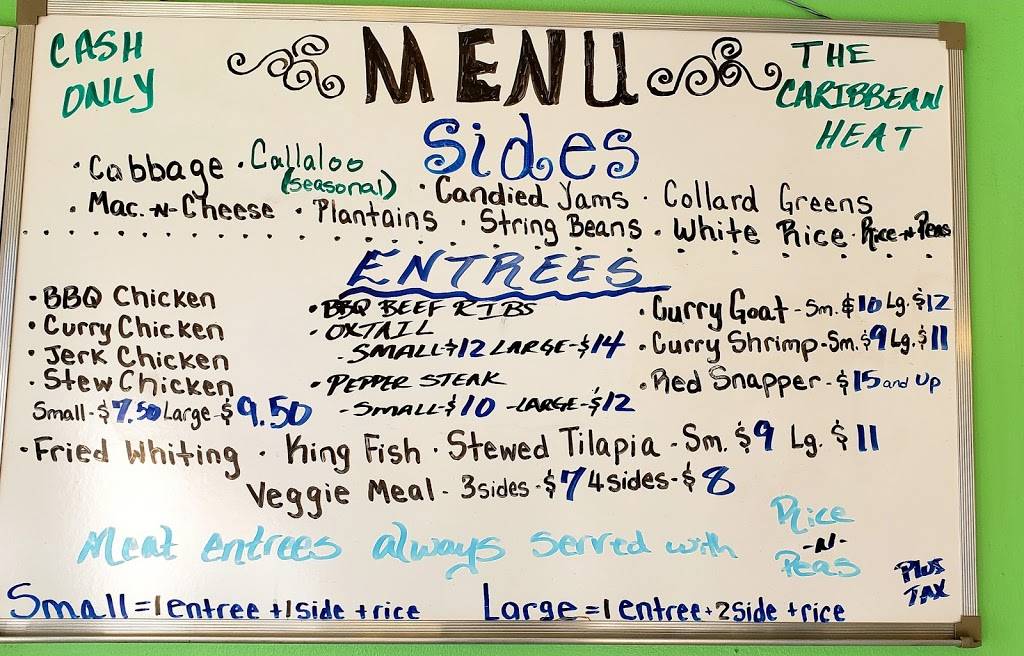 CASH ONLY
MENU
THE CARIBBEAN HEAT
Sides
• Cabbage • Callaloo (seasonal) • Candied Yams • Collard Greens
• Mac.-N-Cheese • Plantains • String Beans • White Rice • Rice-N-Peas
ENTREES
• BBQ Chicken
• Curry Chicken
• Jerk Chicken
• Stew Chicken
Small-$7.50 Large-$9.50
• BBQ BEEF RIBS
• OXTAIL
- SMALL-$12 LARGE-$14
• PEPPER STEAK
- SMALL-$10 -LARGE-$12
• Curry Goat - Sm. $10 Lg. $12
• Curry Shrimp-Sm. $9 Lg. $11
• Red Snapper - $15 and Up
• Fried Whiting • King Fish • Stewed Tilapia - Sm. $9 Lg. $11
Veggie Meal - 3 sides - $7 4 sides - $8
Meat entrees always served with Rice -N- Peas
PLUS TAX
Small = 1 entree + 1 side + rice
Large = 1 entree + 2 side + rice